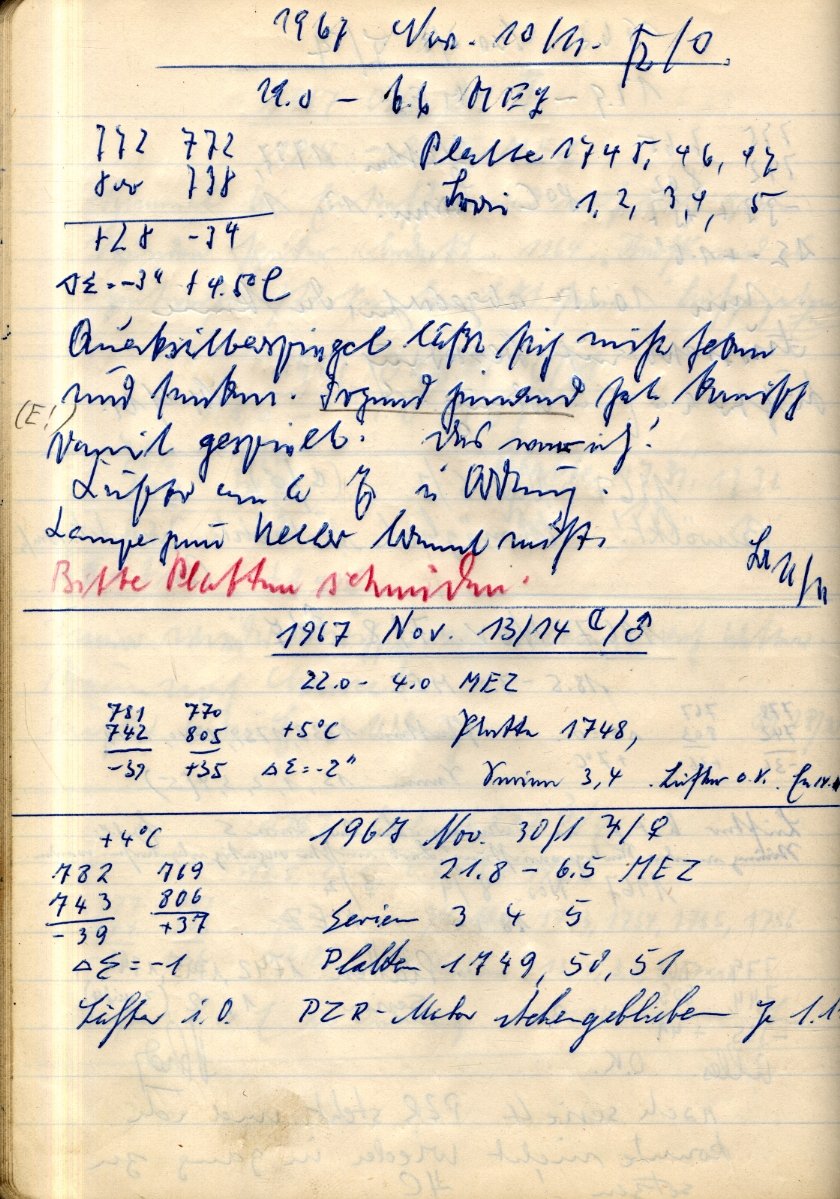 1967 Nov. 10/11. ♀/♄
22.0 – 6.6 MEZ
772 772 Platte 1745, 46, 47
800 738 Serie 1, 2, 3, 4, 5
+28 -34
ΔΣ = -3" +4.5°C
Quecksilberspiegel läßt sich nicht heben
und senken. Irgend jemand hat komisch
(E!) damit gespielt. Das war ich!
Lüfter in Ordnung.
Lampe zum Keller brennt nicht.
Bitte Platten schneiden.
11/11
1967 Nov. 13/14 ☾/♂
22.0 – 4.0 MEZ
781 770
742 805 +5°C Platte 1748,
-39 +35 ΔΣ = -2" Serien 3, 4 . Lüfter o.K.
+4°C 1967 Nov. 30/1 ♃/♀
782 769 21.8 – 6.5 MEZ
743 806
-39 +37 Serien 3 4 5
ΔΣ = -1 Platten 1749, 50, 51
Lüfter i.O. PZR-Motor stehengeblieben